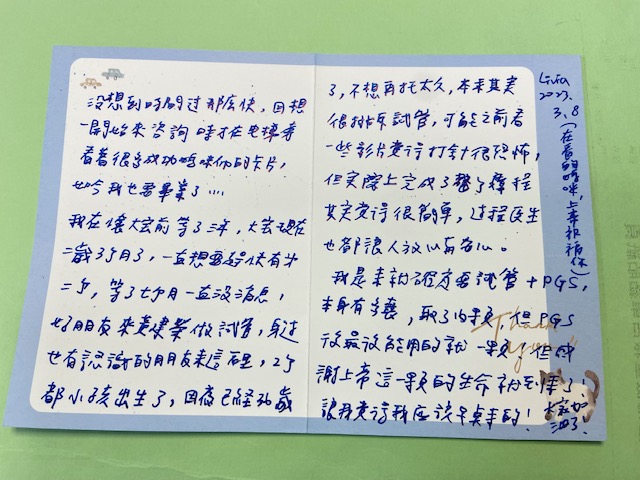 沒想到時間過那麼快,回想
一開始來咨詢時才在電梯旁
看著很多成功媽咪們的卡片,
如今我也要畢業了....
我在懷大寶前等了三年,大寶現在
二歲3個月了,一直想要趕快有第
二個,等了七個月一直沒消息,
好朋友來黃建榮做試管,身邊
也有認識的朋友來這裡,2個
都小孩出生了,因為已經36歲
了,不想再托太久,本來其實
很排斥試管,可能之前看
一些影片覺得打針很恐怖,
但實際上完成了整個療程
其實覺得很簡單,過程醫生
也都讓人放心安心。
我是來就確定要試管+PGS,
本身有多囊,取了 顆,但PGS
後最後能用的就一顆,但感
謝上帝這一顆的生命就到位了,
讓我覺得我應該早點來的!
大家加
油了!
Thank
you
Livia
2023.
3.8
(在看的媽咪,上帝祝福你)